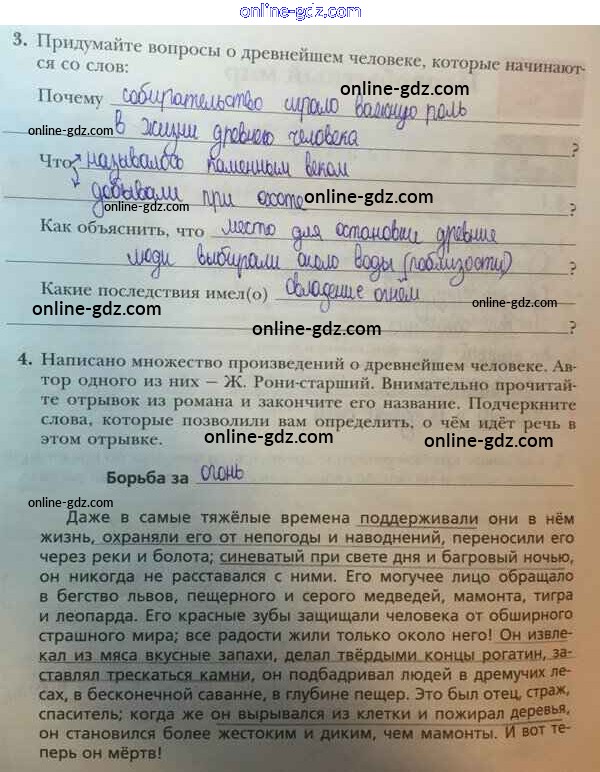 online-gdz.com
3. Придумайте вопросы о древнейшем человеке, которые начинают-
ся со слов:
online-gdz.com
Почему собирательство играло важную роль
online-gdz.com
в жизни древнего человека ?
Что называлось каменным веком
добывали при охоте ?
online-gdz.com
online-gdz.com
Как объяснить, что место для остановки древние
люди выбирали около воды (поблизости) ?
Какие последствия имел(о) овладение огнём
online-gdz.com
online-gdz.com
online-gdz.com
?
4. Написано множество произведений о древнейшем человеке. Ав-
тор одного из них – Ж. Рони-старший. Внимательно прочитай-
те отрывок из романа и закончите его название. Подчеркните
слова, которые позволили вам определить, о чём идёт речь в
этом отрывке.
online-gdz.com
online-gdz.com
Борьба за огонь
online-gdz.com
Даже в самые тяжёлые времена поддерживали они в нём
жизнь, охраняли его от непогоды и наводнений, переносили его
через реки и болота; синеватый при свете дня и багровый ночью,
он никогда не расставался с ними. Его могучее лицо обращало
в бегство львов, пещерного и серого медведей, мамонта, тигра
и леопарда. Его красные зубы защищали человека от обширного
страшного мира; все радости жили только около него! Он извле-
кал из мяса вкусные запахи, делал твёрдыми концы рогатин, за-
ставлял трескаться камни, он подбадривал людей в дремучих ле-
сах, в бесконечной саванне, в глубине пещер. Это был отец, страж,
спаситель; когда же он вырывался из клетки и пожирал деревья,
он становился более жестоким и диким, чем мамонты. И вот те-
перь он мёртв!